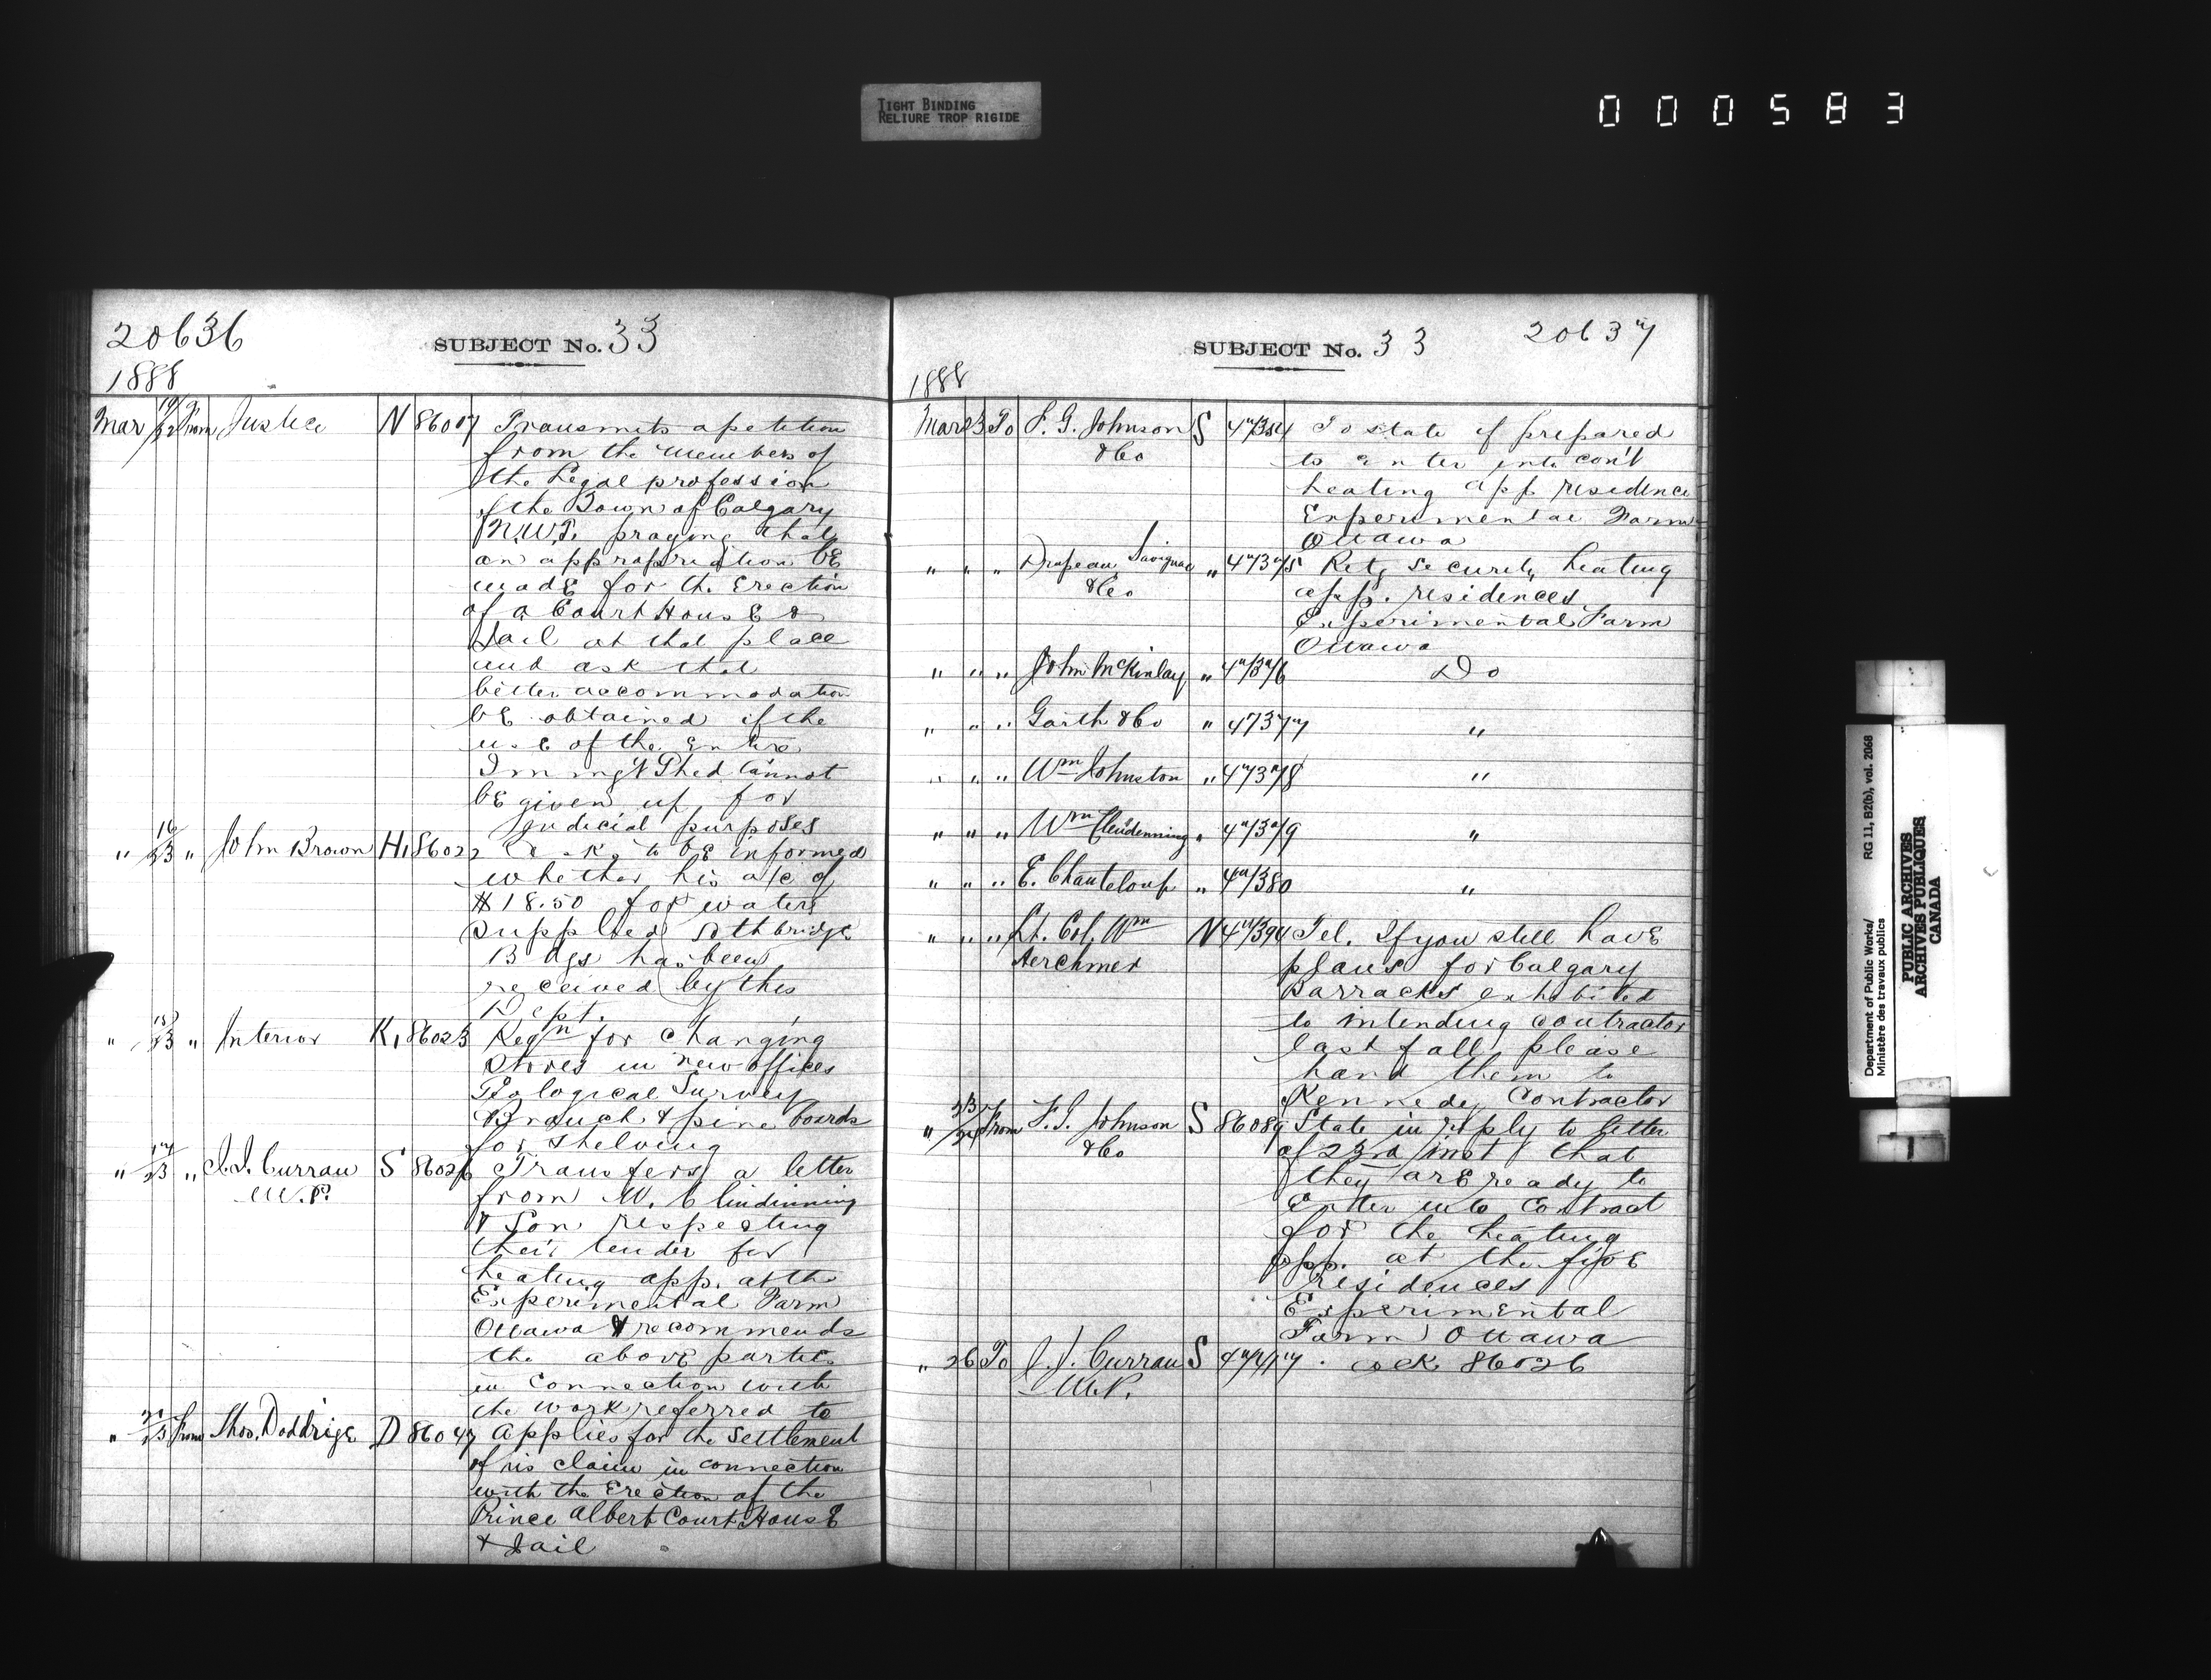 TIGHT BINDING
RELIURE TROP RIGIDE
000583
20636
SUBJECT No. 33
1888
Mar 19/22 From Justice N 86007 Transmits a petition
from the members of
the Legal profession
of the Town of Calgary
N.W.T. praying that
an appropriation be
made for the Erection
of a Court House &
Jail at that place
and ask that
better accommodation
be obtained if the
use of the entire
Immgt Shed cannot
be given up for
Judicial purposes
" 16/23 " John Brown H1 86022 Asks to be informed
whether his a/c of
$18.50 for waters
supplied Lethbridge
Bdgs has been
received by this
Dept.
" 15/23 " Interior K1 86023 Reqn for changing
Stores in new offices
Geological Survey
Branch & pine boards
for shelving
" 17/23 " J.J. Curran S 86026 Transfers a letter
M.P. from W. Clindinning
& Son respecting
their tender for
heating app. at the
Experimental Farm
Ottawa & recommends
the above parties
in connection with
the work referred to
" 23 From Thos. Doddrige D 86047 Applies for the Settlement
of his claim in connection
with the Erection of the
Prince Albert Court House
& Jail
SUBJECT No. 33
20637
1888
Mar 23 To F. G. Johnson S 47354 To state if prepared
& Co to enter into con't
heating app residence
Experimental Farm
Ottawa
" " " Drapeau Savignac " 47375 Retg security heating
& Co app. residences
Experimental Farm
Ottawa
" " " John McKinlay " 47376 Do
" " " Garth & Co " 47377 "
" " " Wm Johnston " 47378 "
" " " Wm Clendenning " 47379 "
" " " E. Chanteloup " 47380 "
" " " Lt. Col. Wm N 47394 Tel. If you still have
Herchmer plans for Calgary
Barracks exhibited
to intending contractor
last fall please
hand them to
Kennedy Contractor
" 23/24 From F. G. Johnson S 86089 State in reply to letter
& Co of 23rd inst that
they are ready to
Enter into Contract
for the heating
app. at the five
residences
Experimental
Farm Ottawa
" 26 To J. J. Curran S 47417 . ack 86026
M.P.
Department of Public Works/ RG 11, B2(b), vol. 2068
Ministère des travaux publics
PUBLIC ARCHIVES
ARCHIVES PUBLIQUES
CANADA